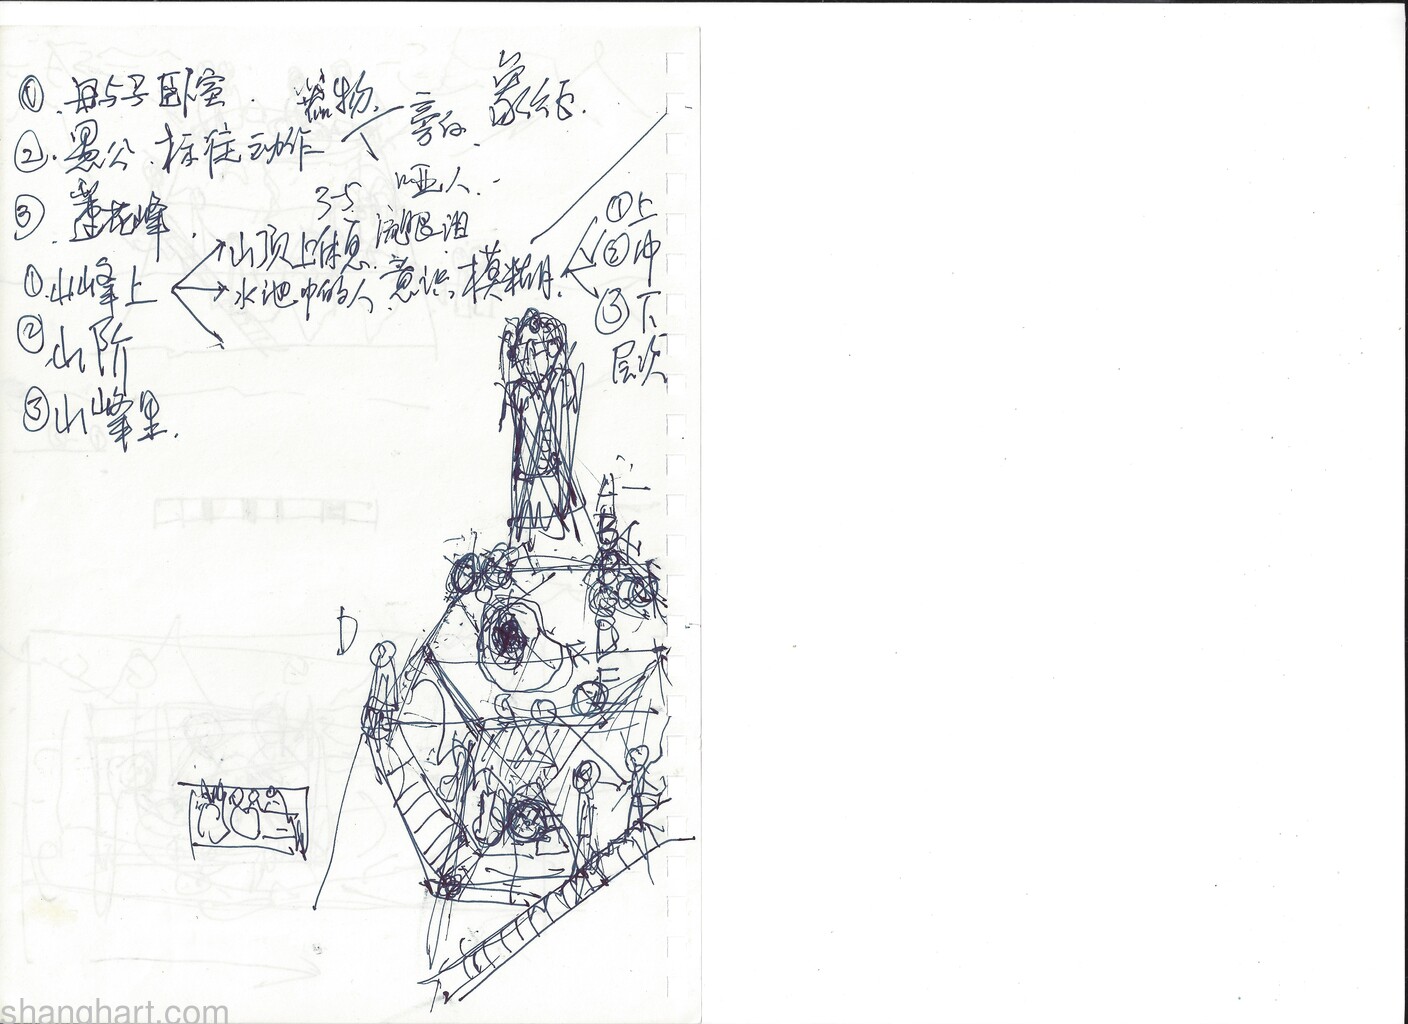 ① 母与子卧室. 器物. 象征.
② 愚公. 标准动作 旁白.
哑人.
③ 莲花峰. 3-5
① 山峰上 山顶上休息. ①上
水池中的人. 意识模糊. ②中
② 山阶 ③下
层次
③ 山峰里.
D
shanghart.com